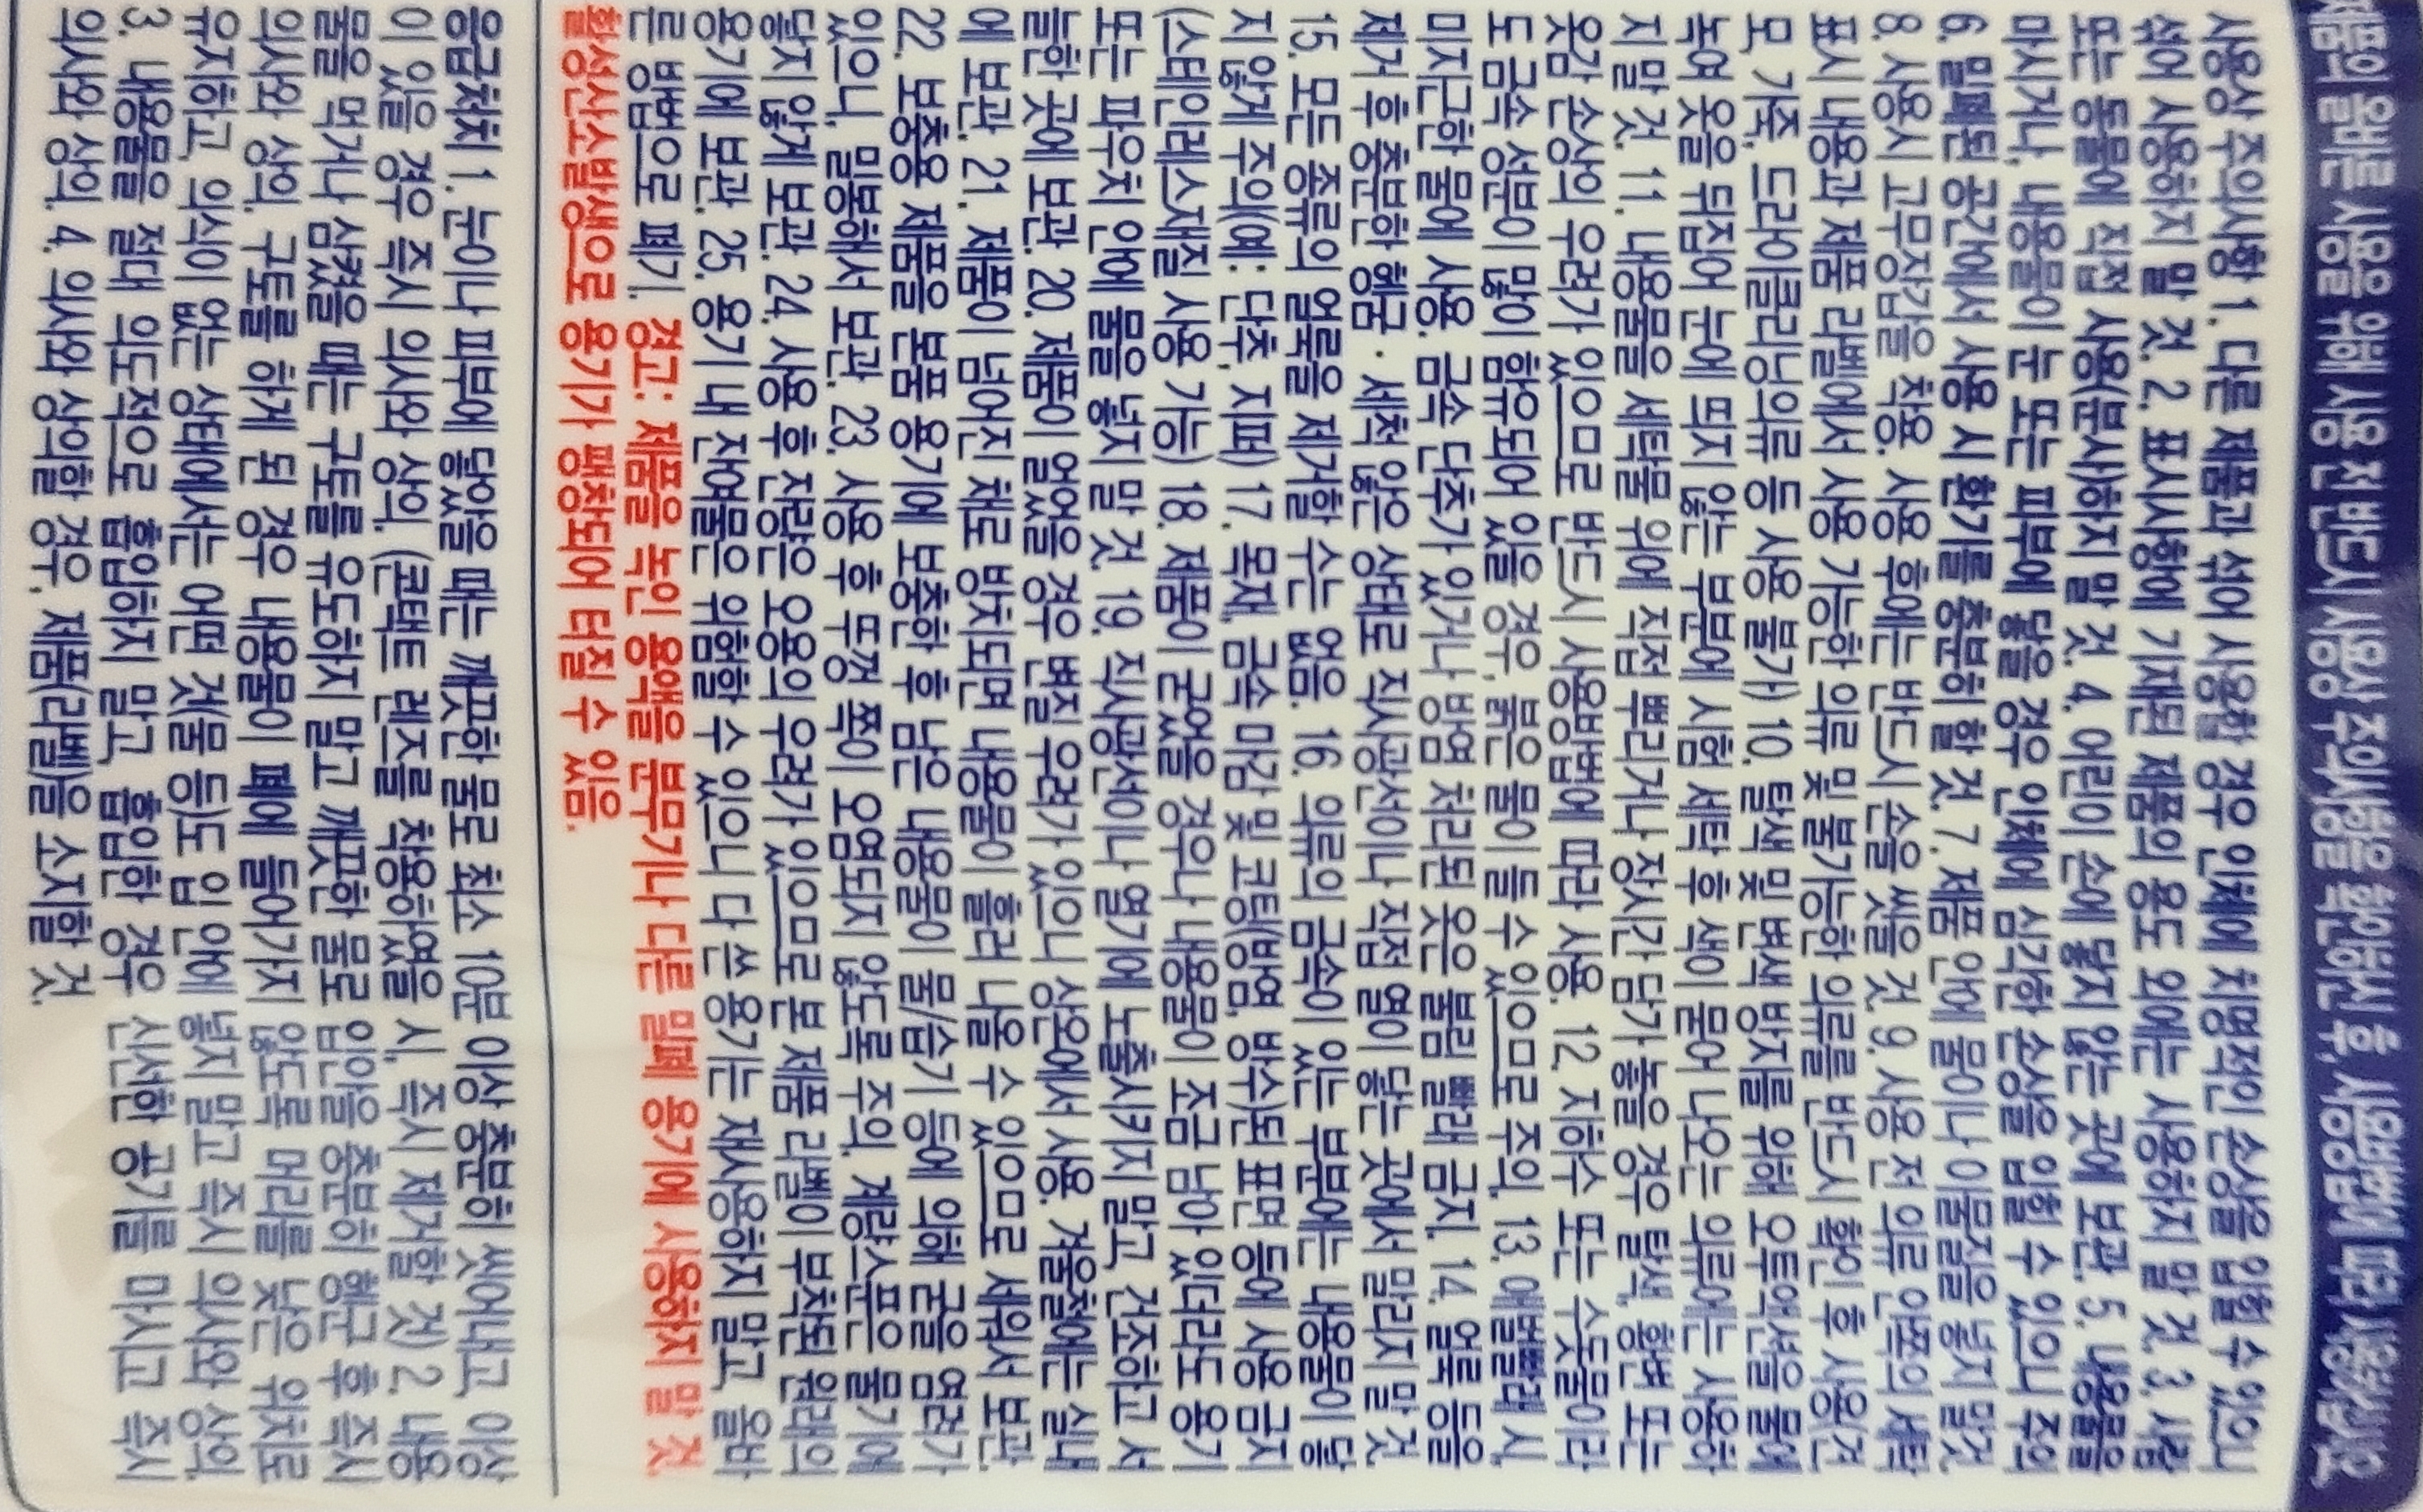 제품의 올바른 사용을 위해 사용 전 반드시 사용상 주의사항을 확인하신 후, 사용방법에 따라 사용하십시오.
사용상 주의사항 1. 다른 제품과 섞어 사용할 경우 인체에 치명적인 손상을 입힐 수 있으니
섞어 사용하지 말 것. 2. 표시사항에 기재된 제품의 용도 외에는 사용하지 말 것. 3. 사람
또는 동물에 직접 사용(분사)하지 말 것. 4. 어린이 손에 닿지 않는 곳에 보관. 5. 내용물을
마시거나, 내용물이 눈 또는 피부에 닿을 경우 인체에 심각한 손상을 입힐 수 있으니 주의
6. 밀폐된 공간에서 사용 시 환기를 충분히 할 것. 7. 제품 안에 물이나 이물질을 넣지 말것.
8. 사용시 고무장갑을 착용. 사용 후에는 반드시 손을 씻을 것. 9. 사용 전 의류 안쪽의 세탁
표시 내용과 제품 라벨에서 사용 가능한 의류 및 불가능한 의류를 반드시 확인 후 사용(견,
모, 가죽, 드라이클리닝의류 등 사용 불가) 10. 탈색 및 변색 방지를 위해 오투액션을 물에
녹여 옷을 뒤집어 눈에 띄지 않는 부분에 시험 세탁 후 색이 묻어 나오는 의류에는 사용하
지 말 것. 11. 내용물을 세탁물 위에 직접 뿌리거나 장시간 담가 놓을 경우 탈색, 황변 또는
옷감 손상의 우려가 있으므로 반드시 사용방법에 따라 사용. 12. 지하수 또는 수돗물이라
도 금속 성분이 많이 함유되어 있을 경우, 붉은 물이 들 수 있으므로 주의. 13. 애벌빨래 시,
미지근한 물에 사용. 금속 단추가 있거나 방염 처리된 옷은 불림 빨래 금지. 14. 얼룩 등을
제거 후 충분한 헹굼 · 세척 않은 상태로 직사광선이나 직접 열이 닿는 곳에서 말리지 말 것
15. 모든 종류의 얼룩을 제거할 수는 없음. 16. 의류의 금속이 있는 부분에는 내용물이 닿
지 않게 주의(예: 단추, 지퍼) 17. 목재, 금속 마감 및 코팅(방염, 방수)된 표면 등에 사용 금지
(스테인레스재질 사용 가능) 18. 제품이 굳었을 경우나 내용물이 조금 남아 있더라도 용기
또는 파우치 안에 물을 넣지 말 것. 19. 직사광선이나 열기에 노출시키지 말고, 건조하고 서
늘한 곳에 보관. 20. 제품이 얼었을 경우 변질 우려가 있으니 상온에서 사용. 겨울철에는 실내
에 보관. 21. 제품이 넘어진 채로 방치되면 내용물이 흘러 나올 수 있으므로 세워서 보관.
22. 보충용 제품을 본품 용기에 보충한 후 남은 내용물이 물/습기 등에 의해 굳을 염려가
있으니, 밀봉해서 보관. 23. 사용 후 뚜껑 쪽이 오염되지 않도록 주의. 계량스푼은 물기에
닿지 않게 보관. 24. 사용 후 잔량은 오용의 우려가 있으므로 본 제품 라벨이 부착된 원래의
용기에 보관. 25. 용기 내 잔여물은 위험할 수 있으니 다 쓴 용기는 재사용하지 말고, 올바
른 방법으로 폐기. 경고: 제품을 녹인 용액을 분무기나 다른 밀폐 용기에 사용하지 말 것.
활성산소발생으로 용기가 팽창되어 터질 수 있음.
응급처치 1. 눈이나 피부에 닿았을 때는 깨끗한 물로 최소 10분 이상 충분히 씻어내고, 이상
이 있을 경우 즉시 의사와 상의. (콘택트 렌즈를 착용하였을 시, 즉시 제거할 것) 2. 내용
물을 먹거나 삼켰을 때는 구토를 유도하지 말고 깨끗한 물로 입안을 충분히 헹군 후 즉시
의사와 상의. 구토를 하게 된 경우 내용물이 폐에 들어가지 않도록 머리를 낮은 위치로
유지하고, 의식이 없는 상태에서는 어떤 것(물 등)도 입 안에 넣지 말고 즉시 의사와 상의.
3. 내용물을 절대 의도적으로 흡입하지 말고, 흡입한 경우 신선한 공기를 마시고 즉시
의사와 상의. 4. 의사와 상의할 경우, 제품(라벨)을 소지할 것.